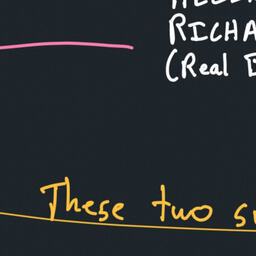 RICHA
(Real
These two